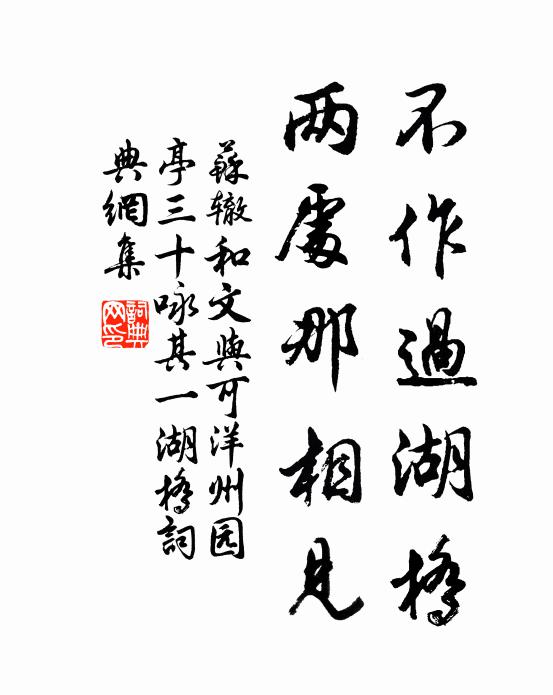 不作過湖橋
两處那相見
蘇辙和文與可洋州园
亭三十咏其一湖橋詞
典網集
詞典網印